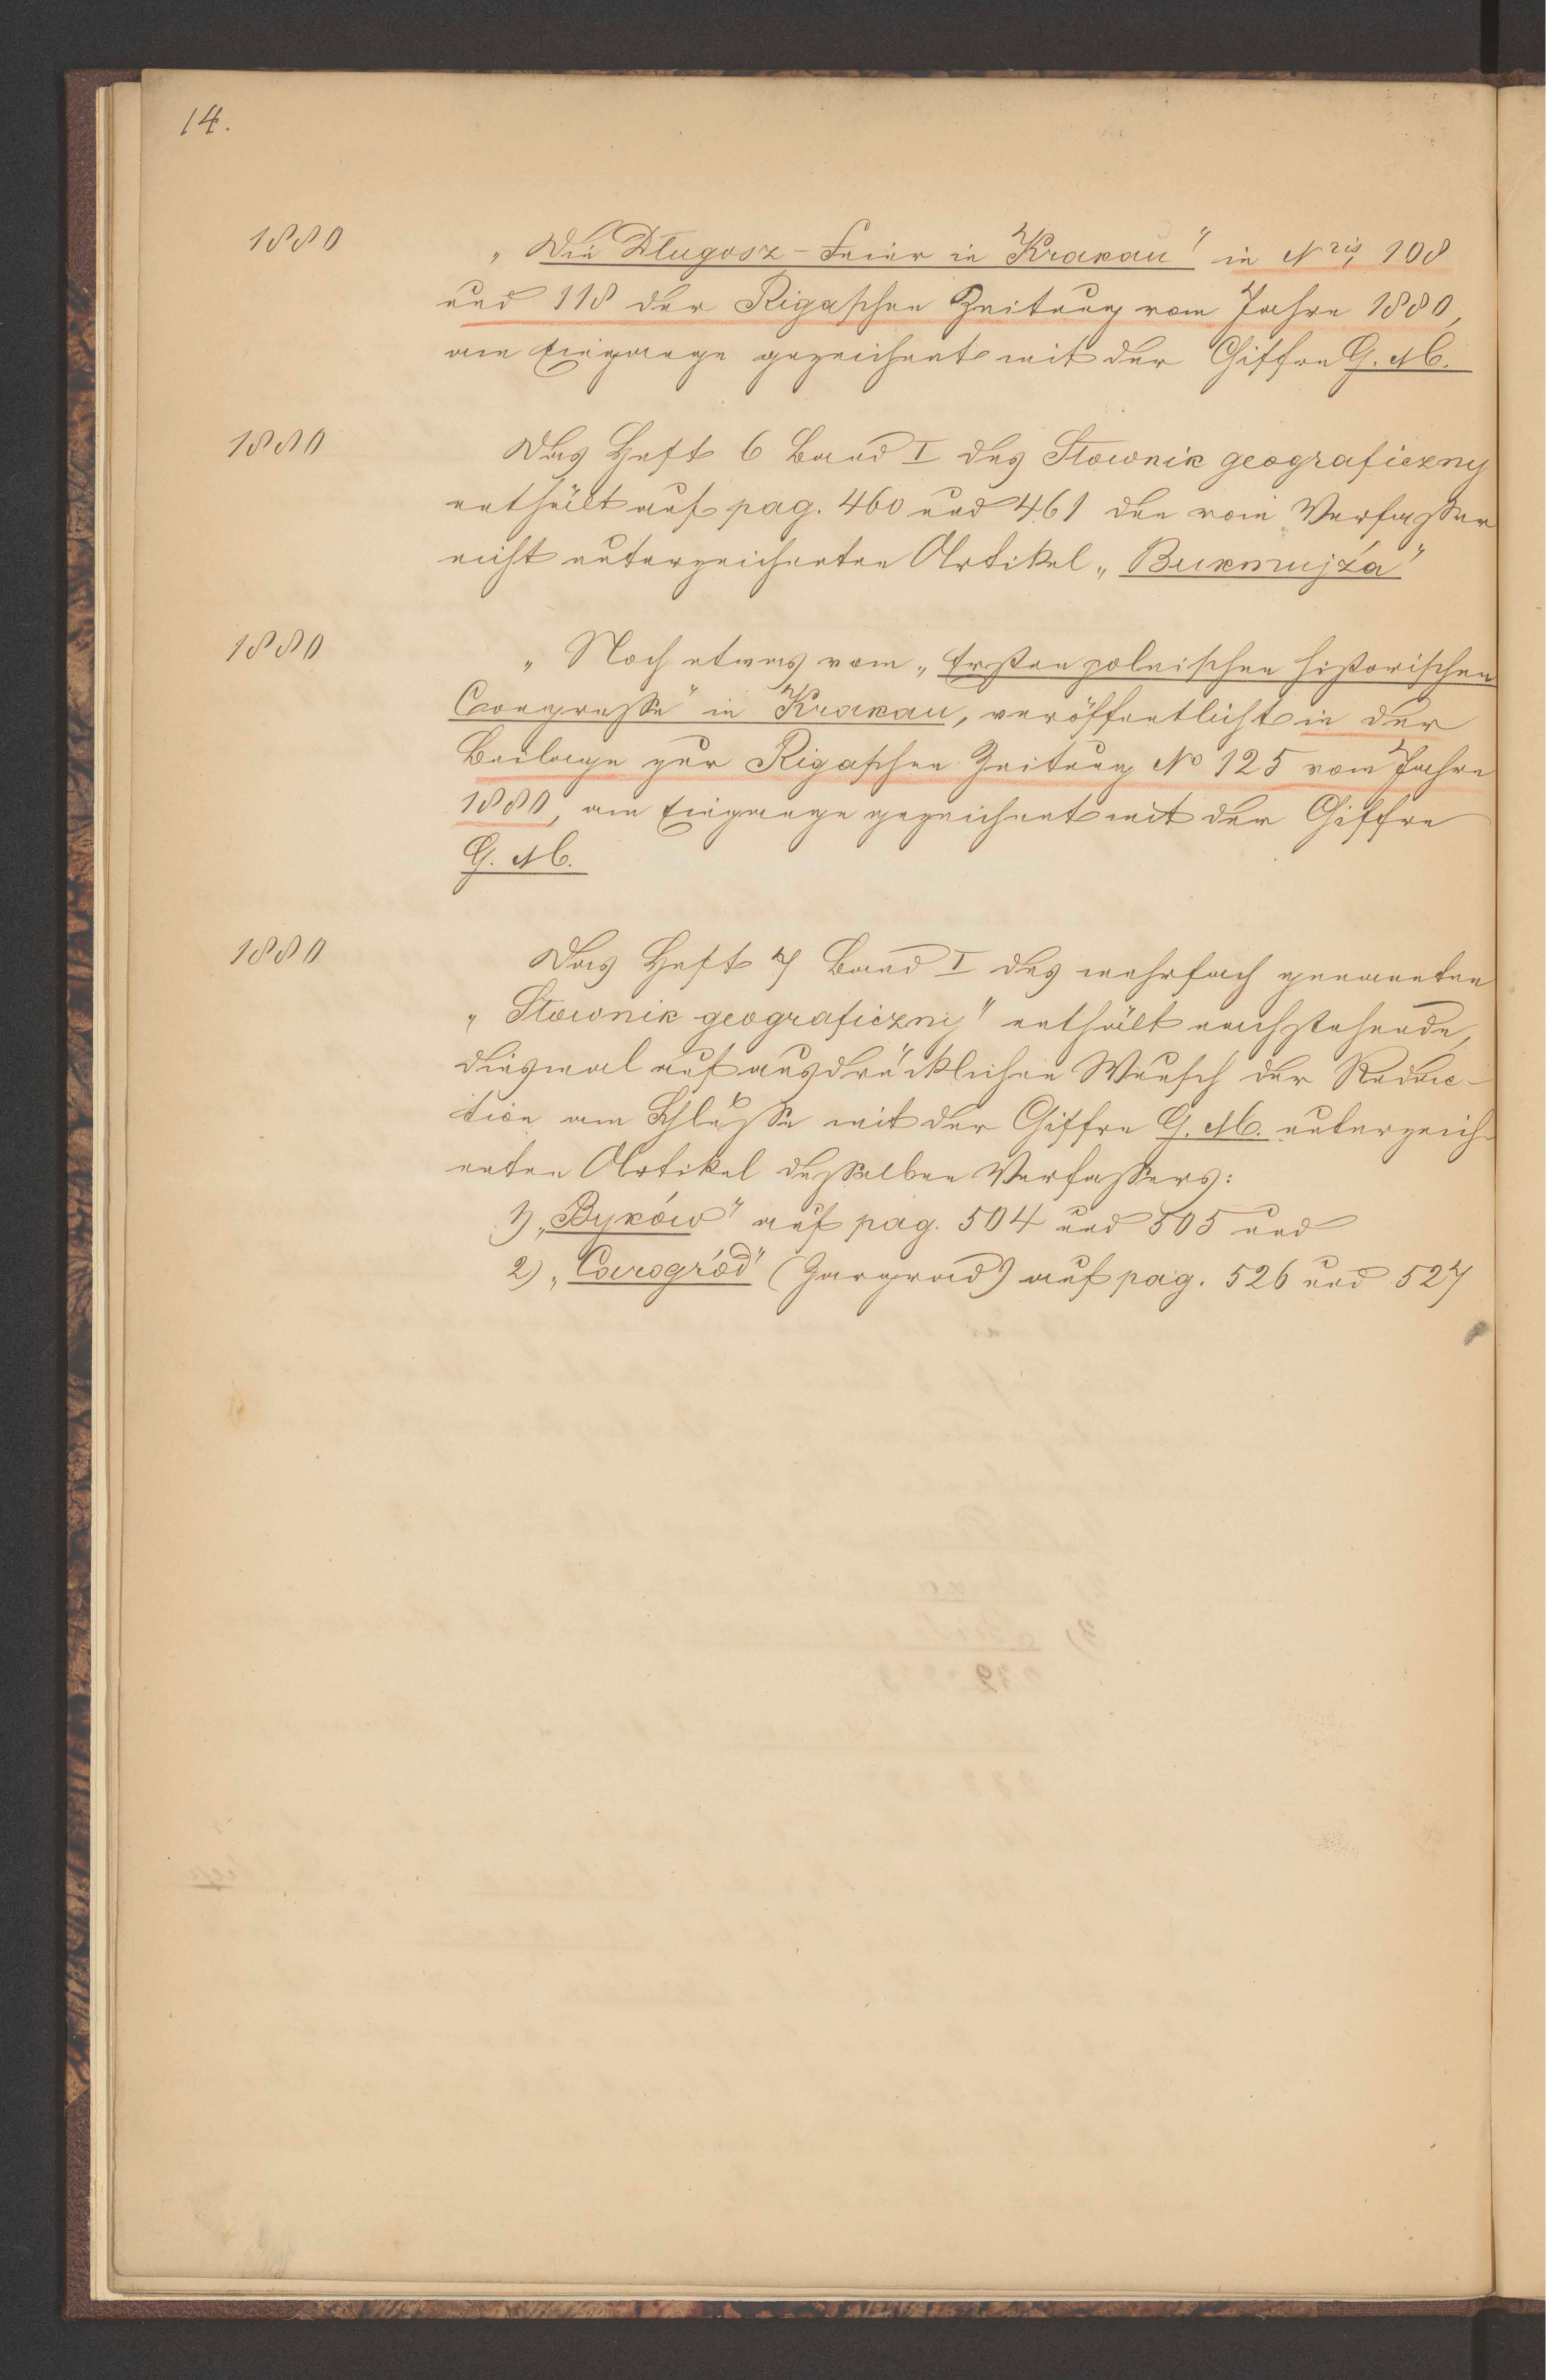 14.
1880
„Die Długosz-Feier in Krakau" in Nris 108
und 118 der Rigaschen Zeitung vom Jahre 1880,
am Eingange gezeichnet mit der Chiffre G. M.
1880
Das Heft 6 Band I des Słownik geograficzny
enthält auf pag. 460 und 461 den vom Verfasser
nicht unterzeichneten Artikel „Bukmujża"
1880
„Noch etwas vom „Ersten polnischen historischen
Congresse" in Krakau, veröffentlicht in der
Beilage zur Rigaschen Zeitung No 125 vom Jahre
1880, am Eingange gezeichnet mit der Chiffre
G. M.
1880
Das Heft 7 Band I des mehrfach genannten
„Słownik geograficzny" enthält nachstehende,
diesmal auf ausdrücklichen Wunsch der Redac-
tion am Schlusse mit der Chiffre G. M. unterzeich-
neten Artikel desselben Verfassers:
1) „Byków" auf pag. 504 und 505 und
2) „Carogród" (Zargrad) auf pag. 526 und 527